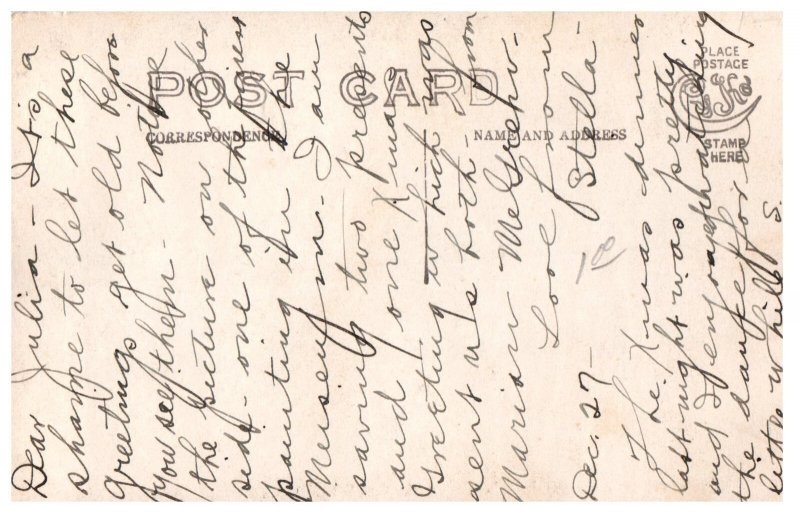 POST CARD
CORRESPONDENCE
NAME AND ADDRESS
PLACE
POSTAGE
STAMP
HERE
Dear Julia - It's a
shame to let these
greetings get old before
you see them. Notice
the picture on other
side - one of the finest
painting in the
Museum. I am
saving two presents
and one Xmas
Greeting which was
sent us both from
Marian McGrew.
Love from
Stella -
1 00
Dec. 27 -
The Xmas dinner
last night was pretty
and I enjoyed
the dance for a
little while S.